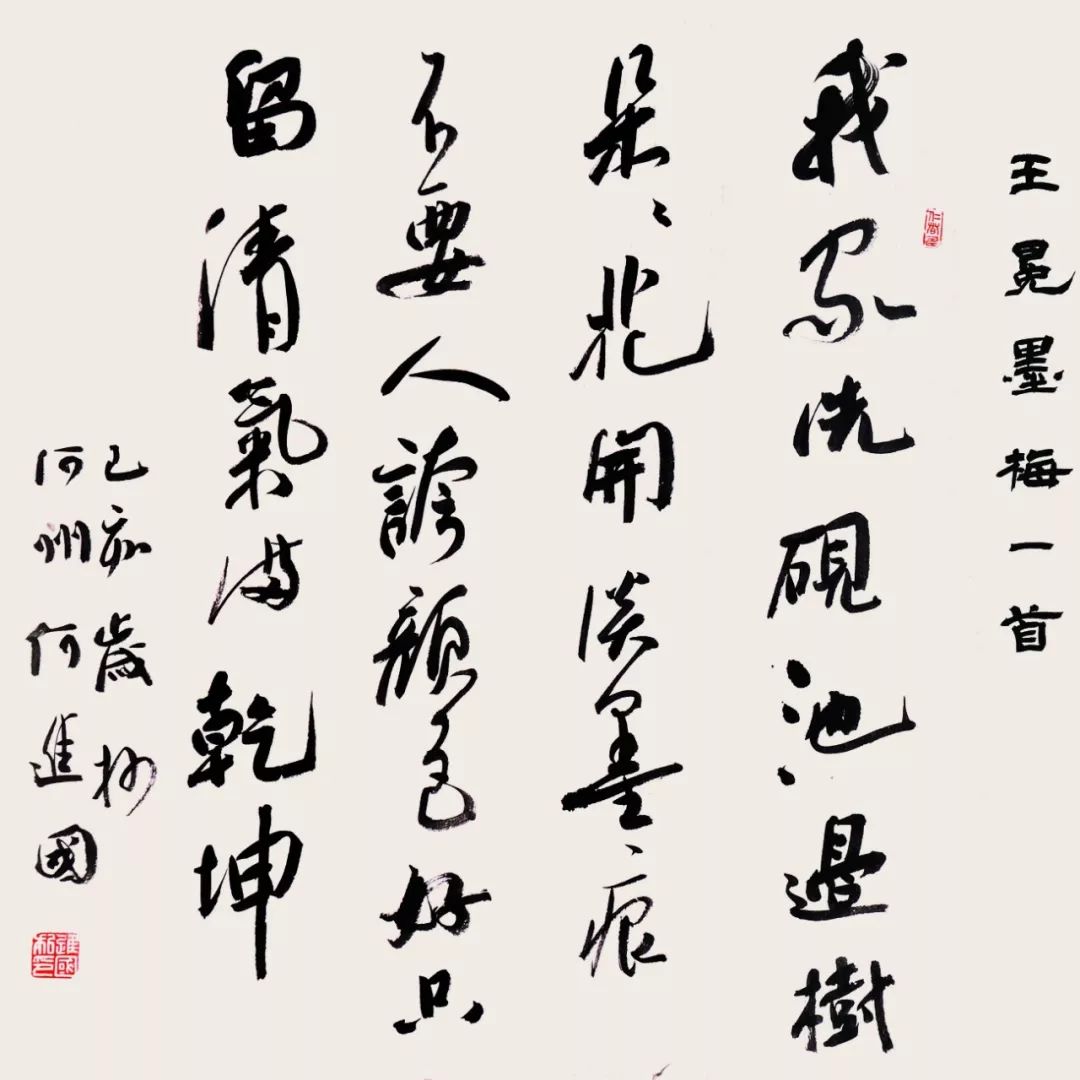 王冕墨梅一首
我家洗硯池邊樹
朵〻花開淡墨痕
不要人誇顏色好只
留清氣滿乾坤
己亥歲杪
河州何進國
進國私印